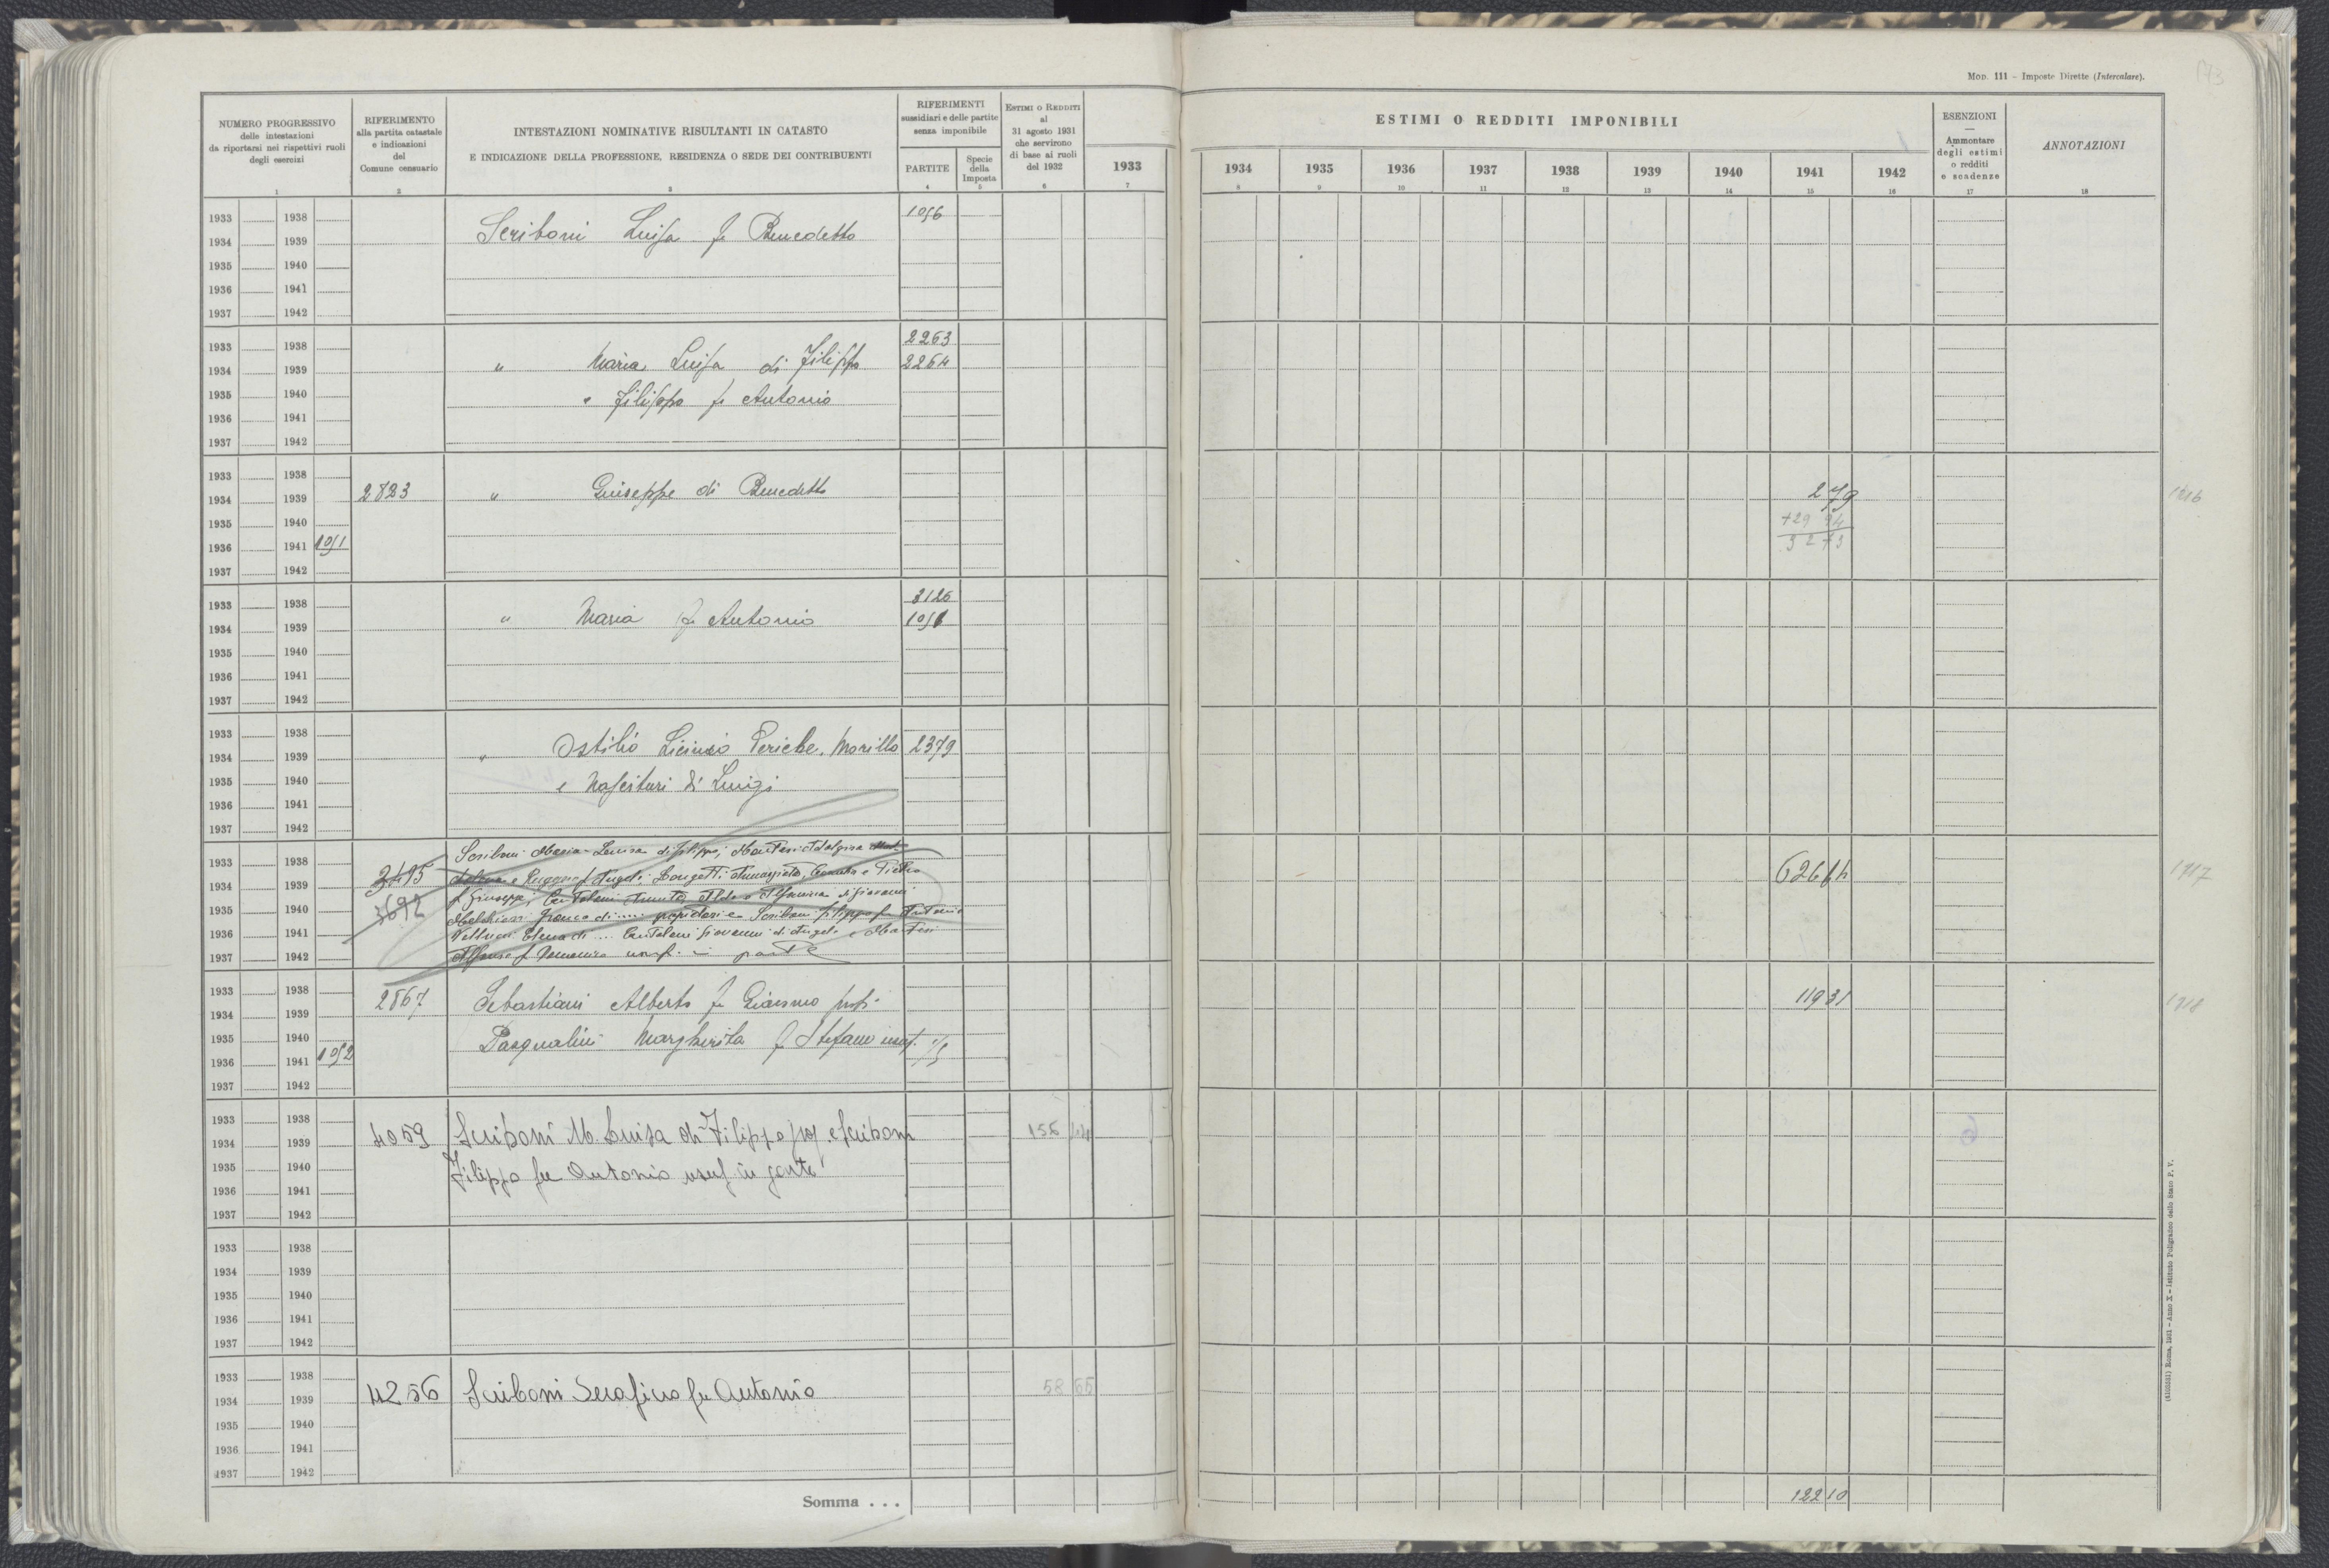 MOD. 111 – Imposte Dirette (Intercalare).
NUMERO PROGRESSIVO
delle intestazioni
da riportarsi nei rispettivi ruoli
degli esercizi
1
RIFERIMENTO
alla partita catastale
e indicazioni
del
Comune censuario
2
INTESTAZIONI NOMINATIVE RISULTANTI IN CATASTO
E INDICAZIONE DELLA PROFESSIONE, RESIDENZA O SEDE DEI CONTRIBUENTI
3
RIFERIMENTI
sussidiari e delle partite
senza imponibile
PARTITE
4
Specie
della
Imposta
5
ESTIMI O REDDITI
al
31 agosto 1931
che servirono
di base ai ruoli
del 1932
6
ESTIMI O REDDITI IMPONIBILI
1933
7
1934
8
1935
9
1936
10
1937
11
1938
12
1939
13
1940
14
1941
15
1942
16
ESENZIONI
—
Ammontare
degli estimi
o redditi
e scadenze
17
ANNOTAZIONI
18
1933 1938 1056
1934 1939 Scriboni Luisa fu Benedetto
1935 1940
1936 1941
1937 1942
1933 1938 2263
1934 1939 " Maria Luisa di Filippo 2264
1935 1940 e Filippo fu Antonio
1936 1941
1937 1942
1933 1938
1934 1939 2823 " Giuseppe di Benedetto 2 79 1216
1935 1940 +29 94
1936 1941 1051 32 73
1937 1942
1933 1938 3126
1934 1939 " Maria fu Antonio 1051
1935 1940
1936 1941
1937 1942
1933 1938
1934 1939 " Ostilio Licinio Pericle, Morillo 2379
1935 1940 e Nascituri di Luigi
1936 1941
1937 1942
1933 1938 Scriboni Maria Luisa di Filippo; Mantesi Adalgisa
1934 1939 3495 e Ruggero f Angelo; Longetti Annunziata, e Pietro 626 64 1717
1935 1940 3692 f Giuseppe; Cantaleni Annita, Aldo e Alfonsina di Giovanni
Melchiorri Franca di ..... proprietari e Scriboni Filippo fu Antonio
1936 1941 Vellucci Elena di ... Cantaleni Giovanni di Angelo e
1937 1942 Alfonso f Domenico usuf. in parte
1933 1938 2867 Sebastiani Alberto fu Giacomo prop. 119 31 1718
1934 1939
1935 1940 Pasqualini Margherita f Stefano usuf. 1/3
1936 1941 1052
1937 1942
1933 1938
1934 1939 4059 Scriboni M. Luisa di Filippo prop e Scriboni 156 6
1935 1940 Filippo fu Antonio usuf in parte
1936 1941
1937 1942
1933 1938
1934 1939
1935 1940
1936 1941
1937 1942
1933 1938
1934 1939 4256 Scriboni Serafino fu Antonio 58 65
1935 1940
1936 1941
1937 1942
Somma . . . 122 10